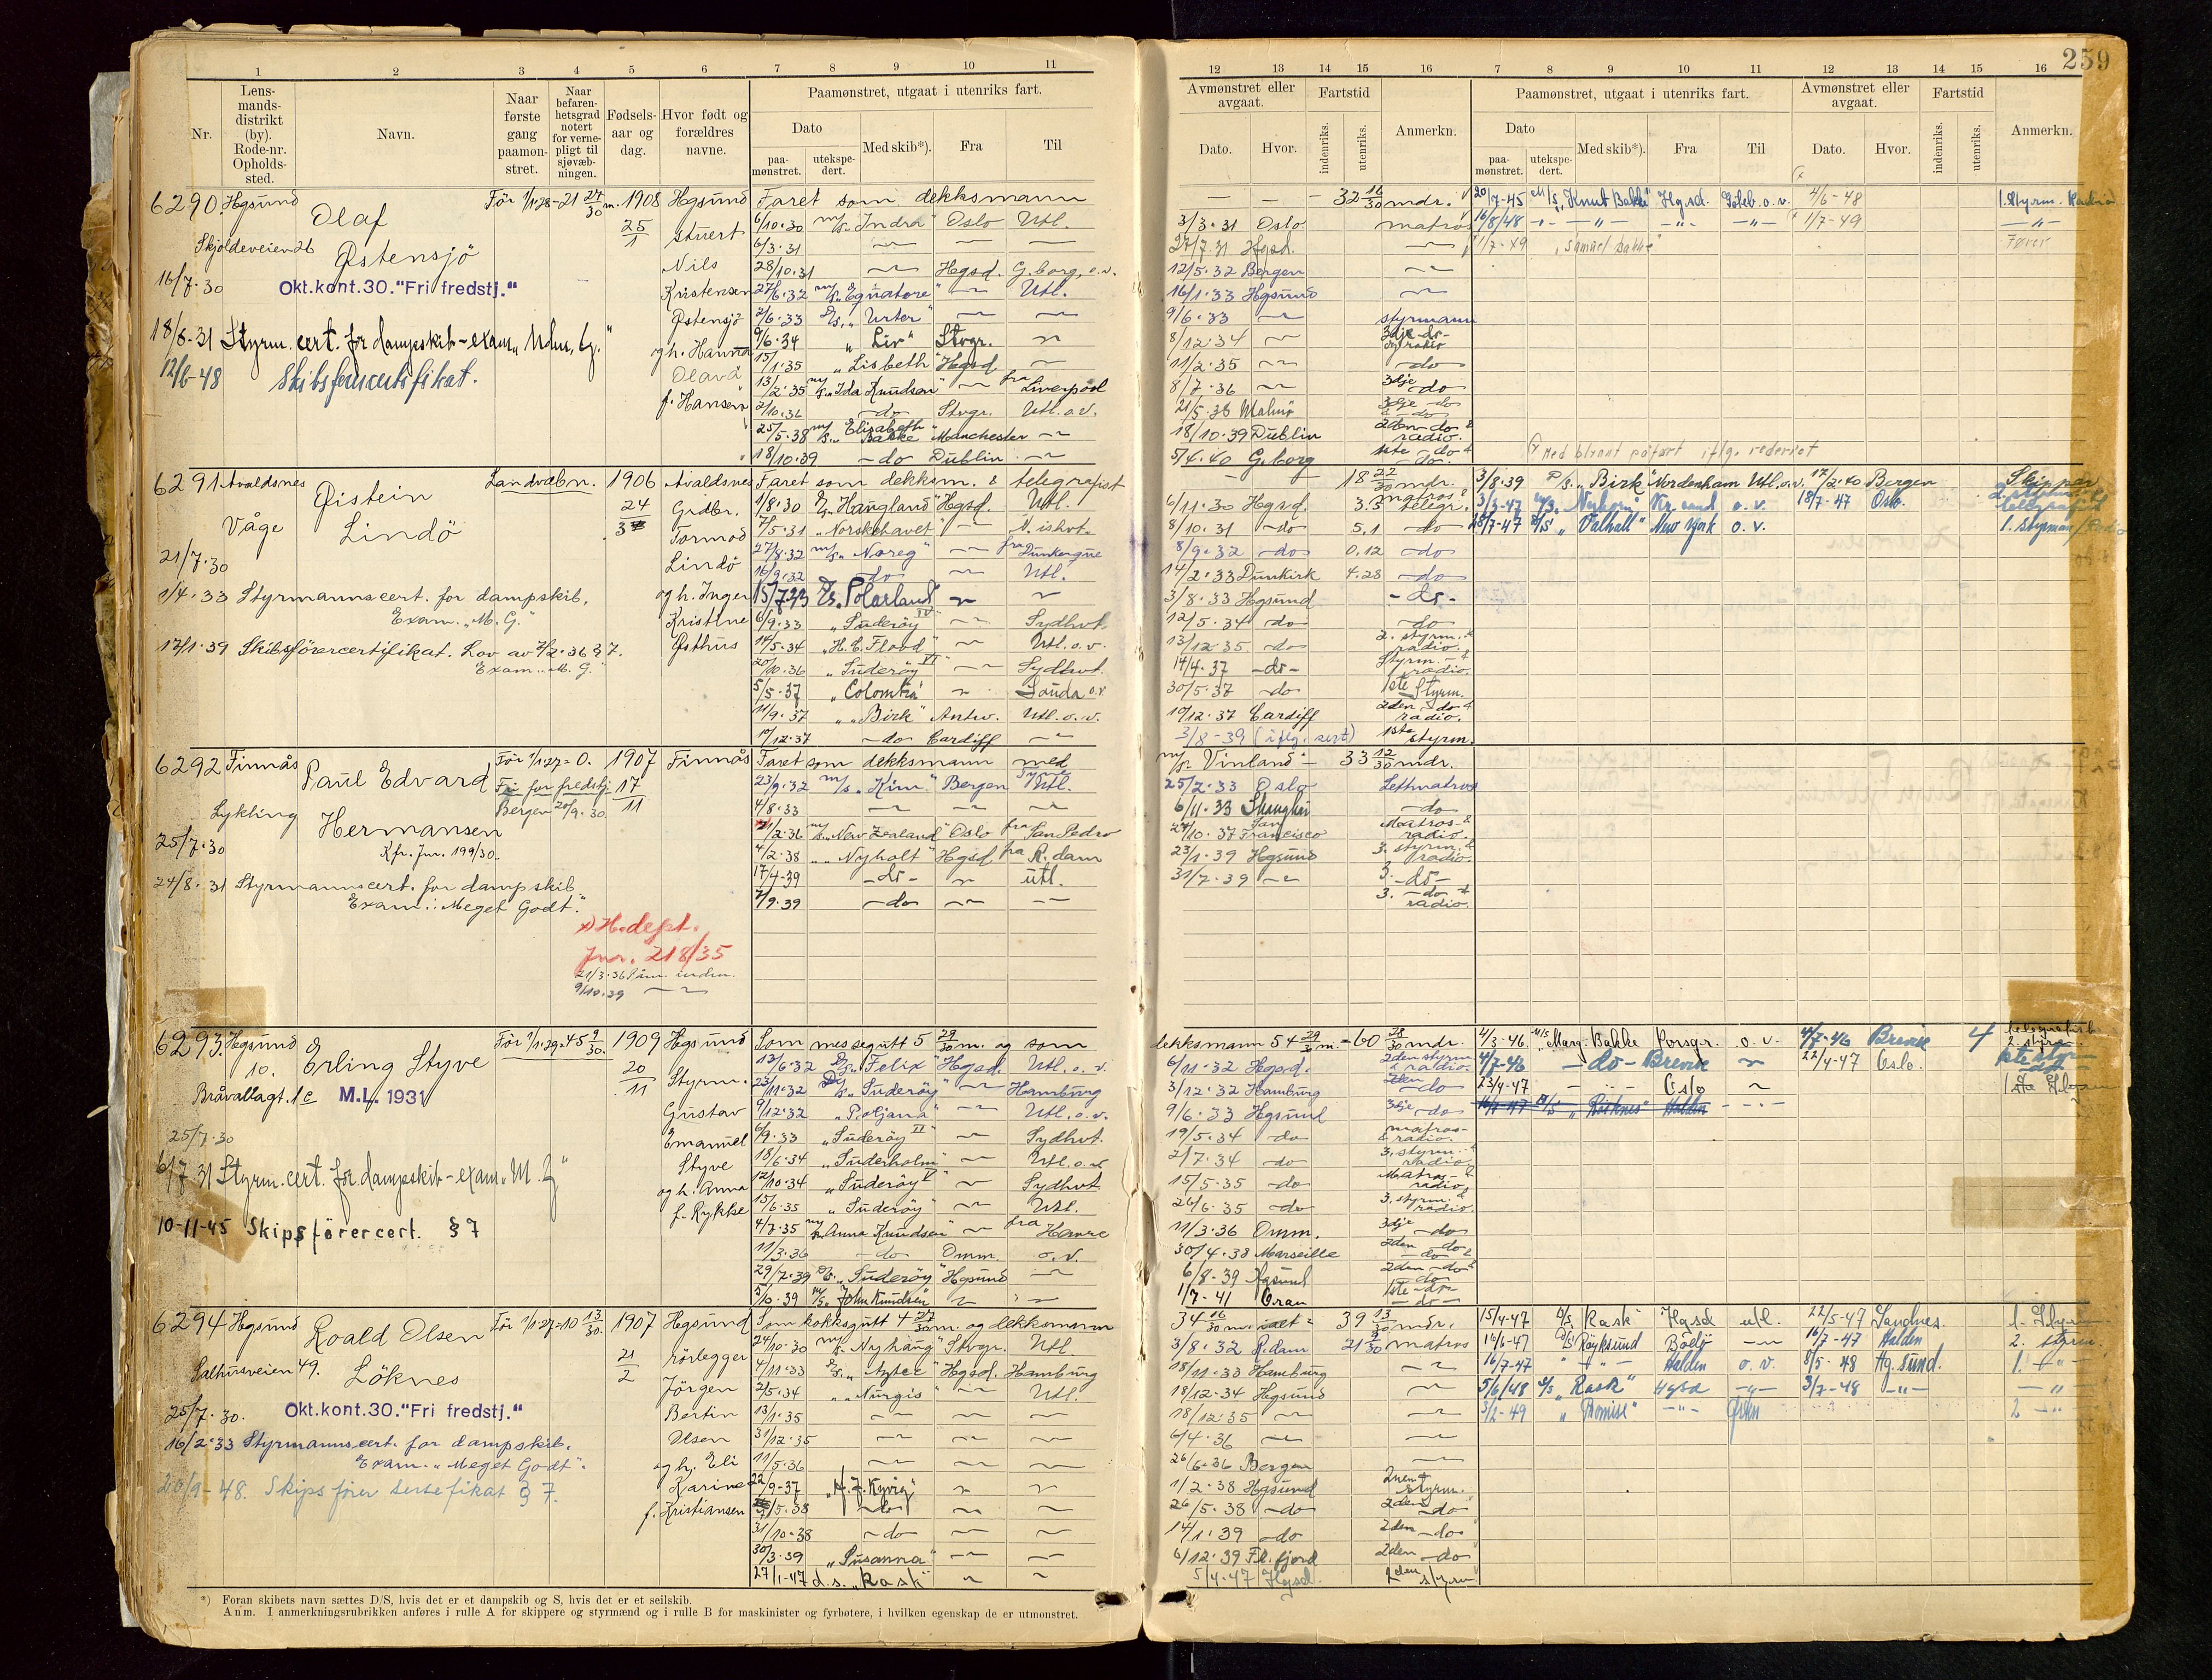 259
1 2 3 4 5 6 7 8 9 10 11
12 13 14 15 16 7 8 9 10 11 12 13 14 15 16
Nr.
Lens-
mands-
distrikt
(by).
Rode-nr.
Opholds-
sted.
Navn.
Naar
første
gang
paamøn-
stret.
Naar
befaren-
hetsgrad
notert
for verne-
pligt til
sjøvæb-
ningen.
Fødsels-
aar og
dag.
Hvor født og
forældres
navne.
Paamønstret, utgaat i utenriks fart.
Dato
paa-
mønstret.
utekspe-
dert.
Med skib*).
Fra
Til
Avmønstret eller
avgaat.
Dato.
Hvor.
Fartstid
indenriks.
utenriks.
Anmerkn.
Paamønstret, utgaat i utenriks fart.
Dato
paa-
mønstret.
utekspe-
dert.
Med skib*).
Fra
Til
Avmønstret eller
avgaat.
Dato.
Hvor.
Fartstid
indenriks.
utenriks.
Anmerkn.
6290 Hgsund Olaf Før 1/1.28-21 27/30 m. 1908 Hgsund Faret som dekksmann
Skjoldeveien 26 Østensjö 25/1 stuert
6/10.30 m/s. "Indra" Oslo Utl.
6/3.31
16/7.30 Okt.kont.30."Fri fredstj." Nils
28/10.31 Hgsd. G.borg, o.v.
Kristensen 27/6.32 m/s. "Equatore" Utl.
Østensjö 2/6.33 D/s. "Urter"
18/8-31 Styrm. cert. for dampskib-exam.
og h. Hanna 9/6.34 "Liv" Stvgr.
12/6-48 Skibsførercertifikat.
Olava 15/1.35 "Lisbeth" Hgsd
13/2.35 m/s. "Ida Knudsen" fra Liverpool
f. Hansen 2/10.36 do Stvgr. Utl. o.v.
25/5.38 m/s. "Elisabeth Bakke" Manchester
18/10.39 do Dublin
32 16/30 mdr.
3/3.31 Oslo matros
27/7.31 Hgsd.
12/5.32 Bergen
16/1.33 Hgsund
9/6.33 styrmann
8/12.34 3dje do og radio
11/2.35 do
8/7.36 3dje do
21/5.38 Malmö 3dje do
18/10.39 Dublin 2den do & radio.
5/4.40 G.borg 1ste do & do.
20/7-45 M/S "Knut Bakke" Hgsd. Goteb. o.v. 4/6-48 1. Styrm. Radio
16/8/48 1/7-49
1/7-49 "Samuel Bakke" Fører
Med blyant påført iflg. rederiet
6291 Avaldsnes Øistein Landvæbn. 1906 Avaldsnes Faret som dekksm. & telegrafist
Våge Lindö 24/3 Grdbr.
1/8.30 D/s. "Haugland" Hgsd. Utl.
Tormod 7/5.31 "Norskehavet" N. ishvt.
21/7.30 Lindö 27/8.32 m/s. "Noreg" fra Dunkerque
16/9.32 do Utl.
1/4.33 Styrmannscert. for dampskib.
Exam. "M.G."
og h. Inger 15/7.33 D/s. "Polarland"
Kristine 6/9.33 "Suderøy IV" Sydhvt.
17/1.39 Skibsførercertifikat. Lov av 7/2.36 § 7.
Exam. "M.G."
Østhus 14/5.34 "H.C. Flood" Utl. o.v.
20/10.36 "Suderøy VI" Sydhvt.
5/5.37 "Colombia" Sauda o.v.
11/9.37 "Birk" Antw. Utl. o.v.
19/12.37 do Cardiff
18 22/30 mdr.
6/11.30 Hgsd. 3.5 matros & telegr.
8/10.31 do 5.1 do
8/9.32 do 0.12 do
14/2.33 Dunkirk 4.28 do
3/8.33 Hgsund do
12/5.34 do do
13/12.35 do 2. styrm. & radio.
14/4.37 do Styrm. & radio.
30/5.37 do 1ste Styrm.
19/12.37 Cardiff 2den do & radio.
3/8-39 (iflg. sert) 1ste styrm.
3/8.39 D/s. "Birk" Nordenham Utl. o.v. 17/2.40 Bergen Skipper
3/3-47 Kr.sand o.v. 18/7-47 Oslo. 2. styrm. & telegrafist
28/7-47 "Valhall" New York o.v. 1. Styrman/Radio
6292 Finnås Paul Edvard Før 1/1.27=0. 1907 Finnås Faret som dekksmann med
Lykling Hermansen Fri for fredstj. 17/11
Bergen 20/9.30.
25/7.30 Kfr. Jnr. 199/30.
23/9.32 m/s. "Kim" Bergen Utl.
4/8.33
21/2.36 m/s. "New Zealand" Oslo fra San Pedro
4/2.38 "Nyholt" Hgsd. fra R.dam
17/4-39 do utl.
7/9.39 do
24/8.31 Styrmannscert. for dampskib
Exam.: "Meget Godt."
x) H. dept.
Jnr. 218/35
21/3.36 Påm. inden.
9/10.39
m/s. Vinland 33 12/30 mdr.
25/7.33 Oslo Lettmatros
6/11.33 Shanghai do
24/10.37 San Francisco Matros & radio.
23/1.39 Hgsund 3. styrm. & radio.
31/7.39 3. do
3. do & radio.
6293 Hgsund Erling Styve Før 1/1.29=45 9/30. 1909 Hgsund Som messegutt 5 29/30 m. og som
10. 20/11 Styrm.
Bråvallagt. 1c M.L. 1931
13/6.32 D/s. "Felix" Hgsd. Utl. o.v.
23/11.32 D/s. "Suderøy" Hamburg
Gustav 9/12.32 "Poljana" Utl. o.v.
25/7.30 Emanuel 6/9.33 "Suderøy VI" Sydhvt.
Styve 18/6.34 "Suderholm" Utl. o.v.
6/7 31 Styrm. cert. for dampskib-exam. "M.G."
og h. Anna 12/10.34 "Suderøy V" Sydhvt
f. Rykke 15/6.35 "Suderøy" Utl.
10-11-45 Skipsförercert. § 7
4/7.35 m/s. Anna Knudsen fra Havre
11/3.36 do Dmm. o.v.
29/7.39 D/s. "Suderøy" Hgsund
5/10.39 m/s. "John Knudsen"
dekksmann 54 29/30 m. = 60 28/30 mdr.
6/11.32 Hgsd. 2den styrm & radio.
3/12.32 Hamburg 2den do
9/6.33 Hgsund 3dje do
19/5.34 do matros & radio.
2/7.34 do 3. styrm. & radio
15/5.35 do Matros & radio
26/6.35 do 3. styrm. & radio.
11/3.36 Dmm. 3dje do
30/4.38 Marseille 2den do & do
6/8-39 Hgsund 2den do & do
1/7-41 Oran 1ste do do
4/3-46. M/S "Marg. Bakke" Porsgr. o.v. 4/7-46 Brevik 4 telegrafist 2. styrm
4/7-46 do Brevik 22/4-47 Oslo. 1ste styrm
23/4-47 Oslo
16/7-47 "Röiknes" Halden
6294 Hgsund Roald Olsen Før 1/1.27=10 13/30. 1907 Hgsund Som kokksgutt 4 27/30 m. og dekksmann
Salhusveien 49. Löknes 21/2 rørlegger
24/10.30 m/s. "Nyhaug" Stvgr. Utl.
4/11.33 D/s. "Aztec" Hgsd. Hamburg
Jörgen 2/5.34 "Nurgis" Utl.
25/7.30. Okt.kont.30."Fri fredstj." Bertin 13/1.35
16/2.33 Styrmannscert. for dampskib.
Exam. "Meget Godt".
Olsen 31/12.35
og h. Eli 11/5.36
20/9-48. Skipsfører sertefikat § 7.
Karine 22/9-37 "A.J. Kyvig"
f. Kristiansen 5.38 do
31/10.38 do
30/3.39 "Susanna"
27/1-47 d.s. "Rask"
34 16/30 m. ialt = 39 13/30 mdr.
3/8.32 R.dam 21 9/30 matros
18/11.33 Hamburg
18/12.34 Hgsund
18/12.35
6/4.36
26/6.36 Bergen
1/2.38 Hgsund 2den styrm.
26/5.38 do 2den do
14/1.39 do 2den do
6/12.39 Fl.fjord 2den do
5/4-47 Hgsd. 2den styrm
15/4-47 D/s Rask Hgsd utl. 22/5-47 Sandnes. 1. Styrm
16/6-47 D/s Röyksund Bodø 16/7-47 Halden 2. styrm.
16/7-47 Halden o.v. 8/5-48 Hg.sund. 1.
5/6/48 D/s "Rask" Hgsd 3/7-48
3/2-49 "Promise" 2
*) Foran skibets navn sættes D/S, hvis det er et dampskib og S, hvis det er et seilskib.
Anm. I anmerkningsrubrikken anføres i rulle A for skippere og styrmænd og i rulle B for maskinister og fyrbøtere, i hvilken egenskap de er utmønstret.